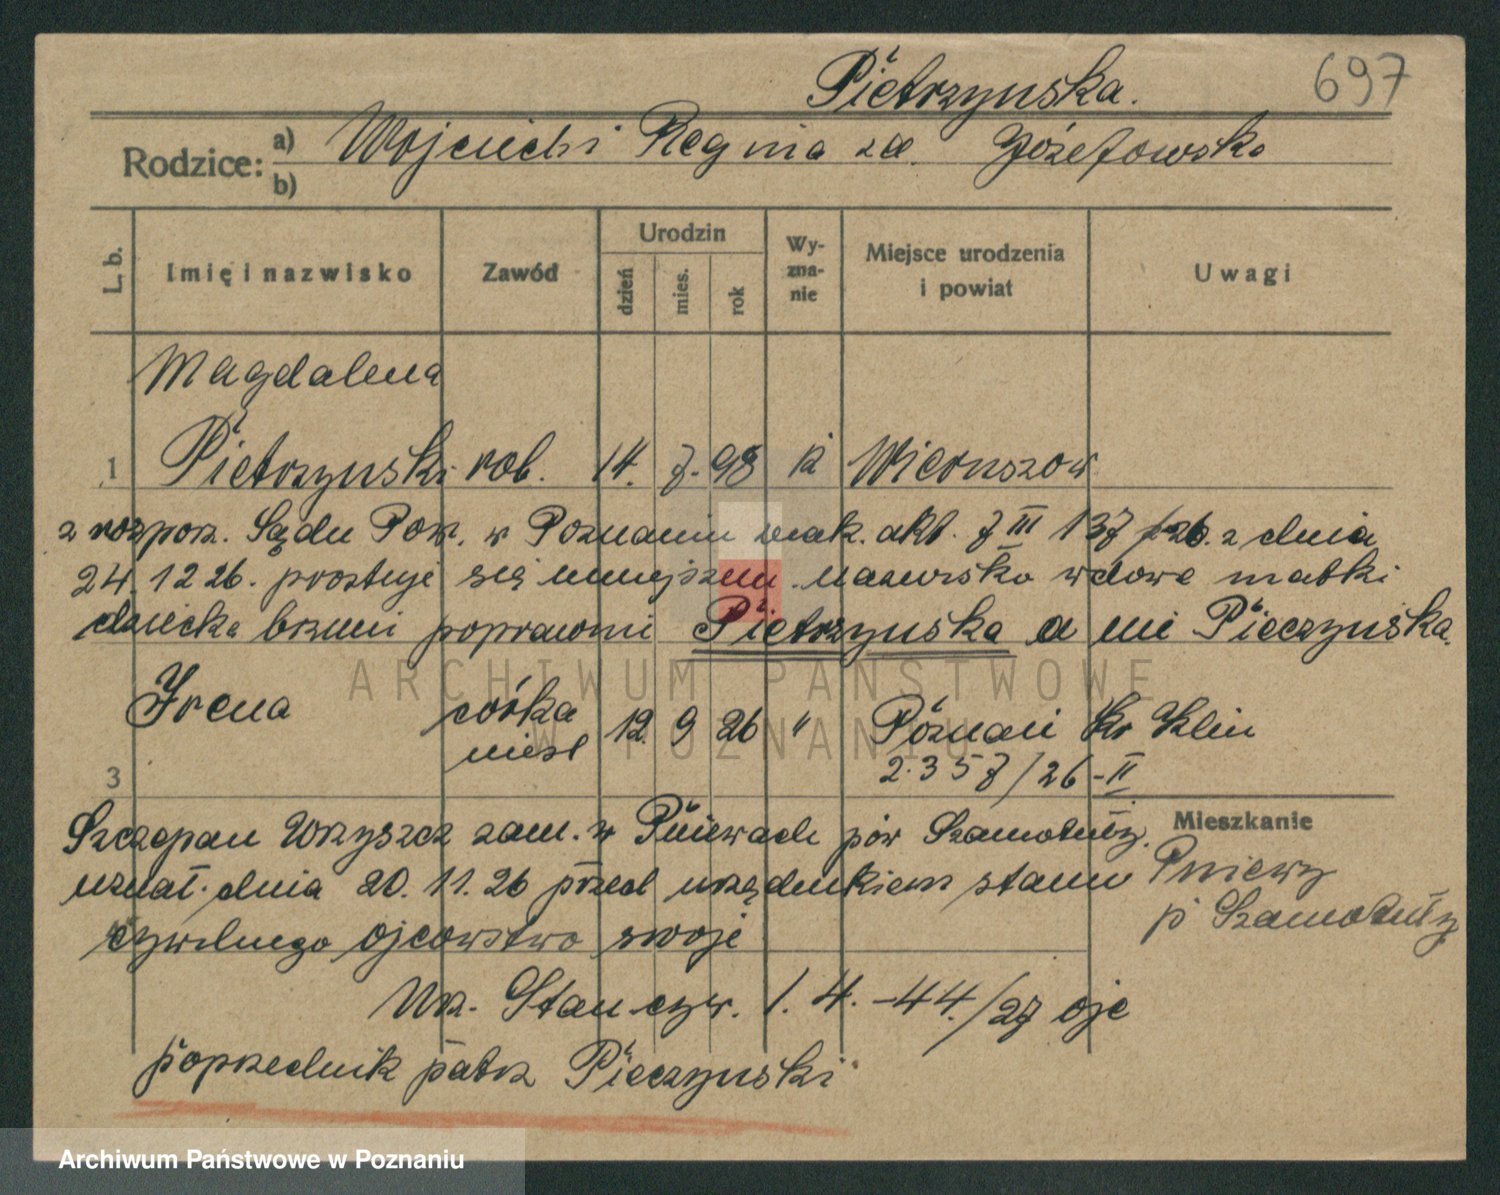 Pietrzyńska.
697
Rodzice:
a) Wojciech i Regina zd. Józefowska
b)
L. b.
Imię i nazwisko
Zawód
Urodzin
dzień
mies.
rok
Wy-
zna-
nie
Miejsce urodzenia
i powiat
Uwagi
Magdalena
1 Pietrzyński rob. 14. 7. 98 k Wieruszow
z rozporz. Sądu Pow. w Poznaniu znak. akt. 7 III 137/26. z dnia
24. 12 26. prostuje się niniejszem nazwisko wdowe matki
dziecka brzmi poprawnie Pietrzyńska a nie Pieczyńska.
Irena córka 12. 9 26 " Poznań Kr Klin
nieśl 2.357/26-II
3
Szczepan Wrzyszcz zam. w Pniewach pow Szamotuły.
uznał dnia 20. 11. 26 przed urzędnikiem stanu
cywilnego ojcowstwo swoje
Mieszkanie
Pniewy
p Szamotuły
Urz. Stan. cyw. 1. 4. -44./27 ojc
poprzednik patrz Pieczyński
ARCHIWUM PAŃSTWOWE
W POZNANIU
Archiwum Państwowe w Poznaniu